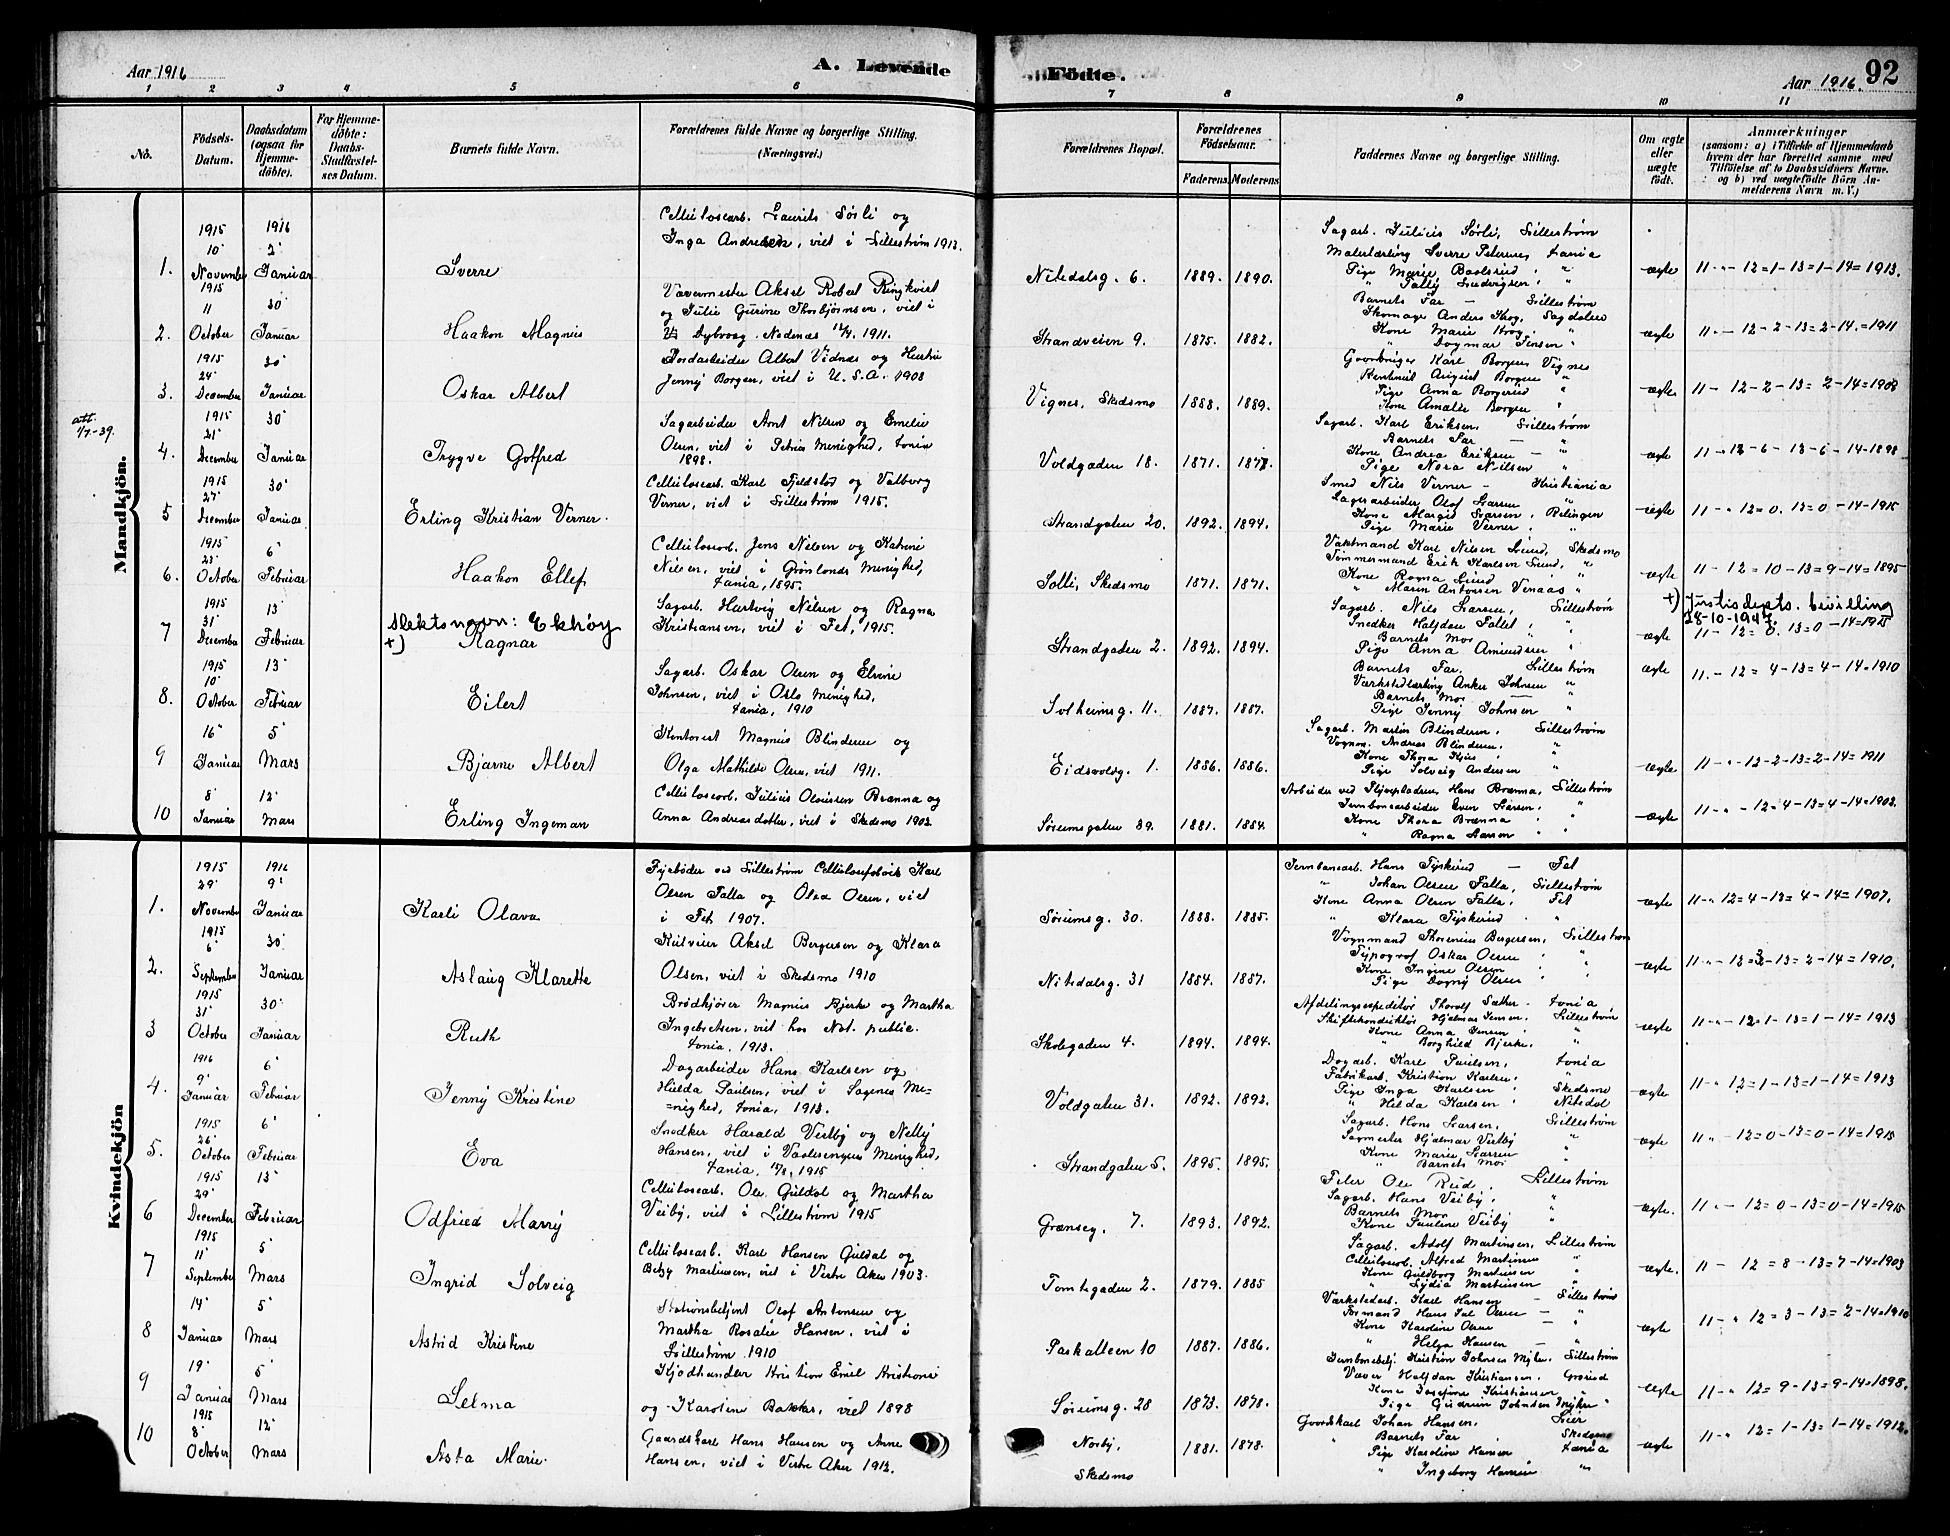 Aar 1916
A. Levende
Födte.
Aar 1916.
92
1 2 3 4 5 6 7 8 9 10 11
No.
Födsels-Datum.
Daabsdatum (ogsaa for Hjemmedöbte).
For Hjemmedöbte: Daabs-Stadfæstelses Datum.
Barnets fulde Navn.
Forældrenes fulde Navne og borgerlige Stilling.
(Næringsvei.)
Forældrenes Bopæl.
Forældrenes Födselsaar.
Faderens. Moderens.
Faddernes Navne og borgerlige Stilling.
Om ægte eller uægte födt.
Anmærkninger
(saasom: a) i Tilfælde af Hjemmedaab hvem der har forrettet samme med Tilföielse af to Daabsvidners Navne. og b) ved uægtefödte Börn Anmelderens Navn m. V.)
Mandkjön.
1. 1915 10 November 1916 2 Januar
Sverre
Cellulosearb. Laurits Sörli og
Inga Andresen, viet i Lillestrøm 1913.
Nitedalsg. 6. 1889. 1890.
Sagarb. Julius Sørli, Lillestrøm
Malerlærling Sverre Petersen,
Pige Marie
Barnets Far – Lillestrøm
ægte 11 - 12=1-13=1-14=1913.
2. 1915 11 October 30 Januar
Haakon Magnus
Værnmester Aksel Robert Ringkvist
og Julie Gurine Thorbjørnsen, viet i
Dybvaag. Nedenæs 1911.
Strandveien 9. 1875. 1882.
Anders Krog, Sagdalen
Kone Marie Krog
Dagmar Jensen
ægte 11 - 12-2-13=2-14=1911
3. 1915 24 December 30 Januar
Oskar Albert
Jordarbeider Albert Vidnæs og
Jenny Borgen, viet i U.S.A. 1908
Vignes, Skedsmo 1888. 1889.
Gaardbruger Karl Borgen, Vignes
August Borgen
Pige Anna Borgerud
Kone Amalie Borgen
ægte 11 - 12-2-13=2-14=1908
att.
1/7-39.
4. 1915 21 December 30 Januar
Trygve Gotfred
Sagarbeider Arnt Nilsen og Emelie
Olsen, viet i Petrus Menighed,
1898.
Voldgaden 18. 1871.
Sagarb. Karl Eriksen, Lillestrøm
Barnets Far
Kone Andrea Eriksen
Pige Nora Nilsen
ægte
5 1915 27 December 30 Januar
Erling Kristian Verner.
Cellulosearb. Karl Fjeldstad og Valborg
Verner, viet i Lillestrøm 1915.
Strandgaten 20. 1892. 1894.
Smed Nils Verner – Kristiania
Lagerarbeider Olaf Larsen
Kone Margit Larsen, Relingen
Pige Marie Verner
ægte 11 - 12=0. 13=0 - 14=1915
6. 1915 23 October 6 Februar
Haakon Ellef
Jens Nilsen og Katrine
Nilsen, viet i Grønlands Menighed,
1895.
Solli, Skedsmo 1871. 1871.
Vaktmand Karl Nilsen Lund, Skedsmo
Tømmermand Erik Karlsen Lund,
Kone Ragna Lund
ægte 11 - 12=10-13=9-14=1895
7 1915 31 December 13 Februar
slektsnavn: Ekhøy
+) Ragnar
Sagarb. Hartvig Nilsen og Ragna
Kristiansen, viet i Fet, 1915.
Strandgaden 2. 1892. 1894.
Sagarb. Nils Larsen, Lillestrøm
Snedker Halfdan
Barnets Mor
Pige Anna Amundsen
ægte
+) Justisdepts. bevilling
28-10-1947.
11 - 12=0. 13=0 - 14=1915
8. 1915 10 October 13 Februar
Eilert
Sagarb. Oskar Olsen og Elvine
Johnsen, viet i Oslo Menighed,
1910
Solheimsg. 11. 1887. 1887.
Barnets Far, Lillestrøm
Værkstedlærling Anker Johnsen
Barnets Mor
Pige Jenny Johnsen
ægte 11 - 12=4-13=4-14=1910
9 16 Januar 5 Mars
Bjarne Albert
Kontorist Magnus Blinderen og
Olga Mathilde Olsen, viet 1911.
Eidsvoldg. 1. 1886. 1886.
Sagarb. Martin Blinderen, Lillestrøm
Vognm. Andreas Blinderen,
Kone Thora
Pige Solveig Andersen
ægte 11 - 12-2-13=2-14=1911
10 8 Januar 12 Mars
Erling Ingeman
Cellulosearb. Julius Olaussen Brænna og
Anna Andreasdatter, viet i Skedsmo 1903.
Sörumsgaten 39. 1881. 1884.
Arbeider ved Hans Brænna, Lillestrøm
Jernbanearbeider Even Larsen,
Kone Thora Brænna
Ragna Larsen
ægte 11 - 12=4-13=4-14=1903.
Kvindekjön
1. 1915 29 November 1916 9 Januar
Karli Olava
Fyrbøder ved Lillestrøm Cellulosefabrik Karl
Olsen Falla og Olea Olsen, viet
i Fet 1907.
Sörumsg. 30. 1888. 1885.
Jernbanearb. Hans Tyskerud – Fet
Johan Olsen Falla, Lillestrøm
Kone Anna Olsen Falla, Fet
Klara Tyskerud
ægte 11 - 12=4-13=4-14=1907.
2. 1915 6 September 30 Januar
Aslaug Klarette
Aksel Bergersen og Klara
Olsen, viet i Skedsmo 1910
Nitedalsg. 31 1884. 1887.
Vognmand Thorenius Bergersen, Lillestrøm
Typograf Oskar Olsen
Kone Ingine Olsen
Pige Dagny Olsen
ægte
3 1915 31 October 30 Januar
Ruth
Brødkjører Magnus Bjerke og Martha
Ingebretsen, viet hos Not. public.
1913.
Skolegaden 4. 1894. 1894.
Afdelingsexpeditør Thorolf Sæther
Skiftekonduktør Hjalmar Jensen, Lillestrøm
Kone Anna Jensen
Borghild Bjerke
ægte 11 - 12=1-13=1-14=1913
4. 1916 9 Januar 6 Februar
Jenny Kristine
Dagarbeider Hans Karlsen og
Hilda Paulsen, viet i Sagenes Me=
=nighed, 1913.
Voldgaten 31. 1892. 1892.
Dagarb. Karl Paulsen,
Fabrikarb. Kristian Karlsen
Pige Inga Karlsen Skedsmo
Hilda Karlsen Nitedal
ægte 11 - 12=1-13=1-14=1913
5. 1915 26 October 6 Februar
Eva
Snedker Harald Vestby og Nelly
Hansen, viet i Vaalerengens Menighed,
1915
Strandgaten 5. 1895. 1895.
Sagarb. Hans Larsen, Lillestrøm
Sagmester Hjalmar Vestby
Kone Marie Larsen
Barnets Mor
ægte 11 - 12=0-13=0-14=1915
6 1915 29 December 13 Februar
Odfried Marry
Cellulosearb. Ole Guldal og Martha
Veiby, viet i Lillestrøm 1915
Grænseg. 7. 1893. 1892.
Filer Ole Rud. Lillestrøm
Sagarb. Hans Veiby
Barnets Mor
Kone Pauline Veiby
ægte. 11 - 12=0-13=0-14=1915
7 1915 11 September 5 Mars
Ingrid Solveig
Cellulosearb. Karl Hansen Guldal og
Betzy Martinsen, viet i Vestre Aker 1903.
Tomtegaden 2. 1879. 1885
Sagarb. Adolf Martinsen, Lillestrøm
Cellulosearb. Alfred Martinsen
Kone Guldborg Martinsen
Lydia Martinsen
ægte. 11 - 12=8-13=7-14=1903
8 14 Januar 5 Mars
Astrid Kristine
Stationsbetjent Olaf Antonsen og
Martha Rosalie Hansen, viet i
Lillestrøm 1910
Paskalleen 10 1887. 1886.
Værkstedarb. Karl Hansen – Lillestrøm
Formand Hans Olsen
Kone Karoline Olsen
Helga Hansen
ægte 11 - 12=3-13=2-14=1910
9 19 Januar 5 Mars
Selma
Kjødhandler Kristian Emil Kristiansen
og Karoline Bakkas, viet 1898
Sörumsg. 28 1873. 1878.
Jernbanebetj. Kristian Johnsen Myhre. Lillestrøm
Væver Halfdan Kristiansen, Grorud
Kone Josefine Kristiansen
Pige Gudrun Johnsen Myhre
ægte 11 - 12=9-13=9-14=1898.
10 1915 8 October 12 Mars
Asta Marie.
Gaardskarl Hans Hansen og Anne
Hansen, viet i Vestre Aker 1912.
Norby,
Skedsmo
1881. 1878.
Gaardskarl Johan Hansen, Lier
Barnets Far, Skedsmo
Pige Karoline Hansen
Ingeborg Hansen
ægte 11 - 12=1-13=1-14=1912.